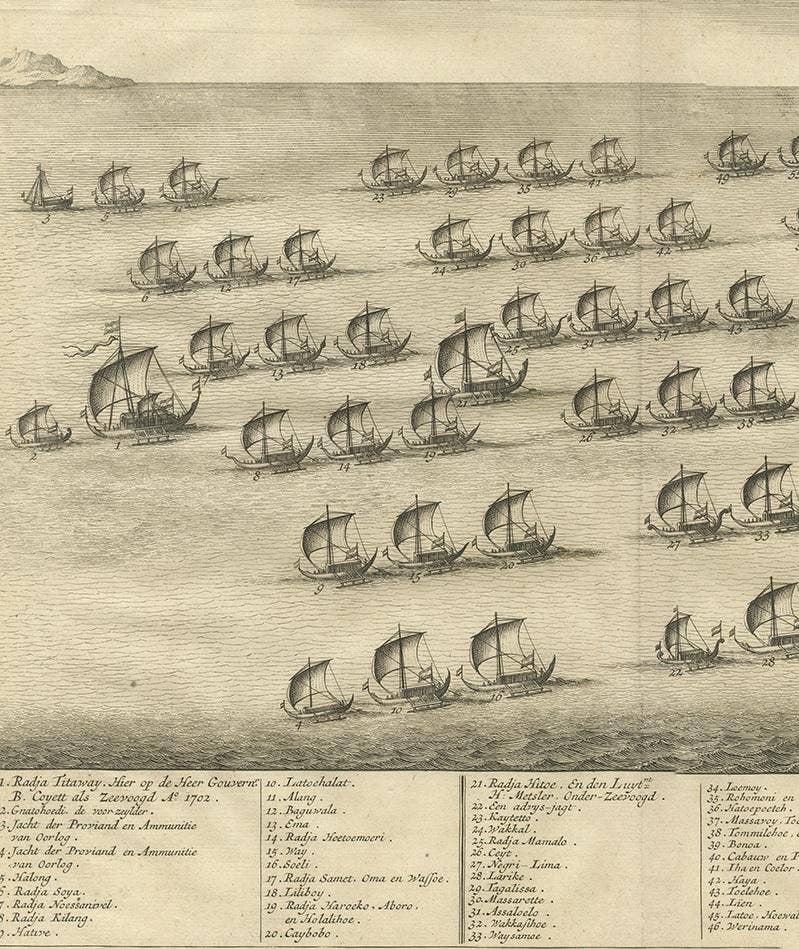 1. Radja Titaway. Hier op de Heer Gouvernr
B. Coyett als Zeevoogd Ao 1702.
2. Gnatohoedi. de voorzeylder.
3. Jacht der Proviand en Ammunitie
van Oorlog.
4. Jacht der Proviand en Ammunitie
van Oorlog.
5. Halong.
6. Radja Soya.
7. Radja Noessanivel.
8. Radja Kilang.
9. Hative.
10. Latoehalat.
11. Alang.
12. Baguwala.
13. Ema.
14. Radja Hoetoemoeri.
15. Way.
16. Soeli.
17. Radja Samet, Oma en Wassoe.
18. Liliboy.
19. Radja Haroeko, Aboro,
en Holalihoe.
20. Caybobo.
21. Radja Hitoe. En den Luytnt
H. Metsler. Onder-Zeevoogd.
22. Een advys-jagt.
23. Kaytetto.
24. Wakkal.
25. Radja Mamalo.
26. Ceyt.
27. Negri-Lima.
28. Larike.
29. Tagalissa.
30. Massarette.
31. Assaloelo.
32. Wakkasihoe.
33. Waysamoe.
34. Loemoy.
35. Rohomoni en
36. Hatoepoeteh.
37. Massavoy,
38. Tommilehoe,
39. Bonoa.
40. Cabauw en
41. Iha en Coelor.
42. Haya.
43. Toelehoe.
44. Lien.
45. Latoe,
46. Werinama.